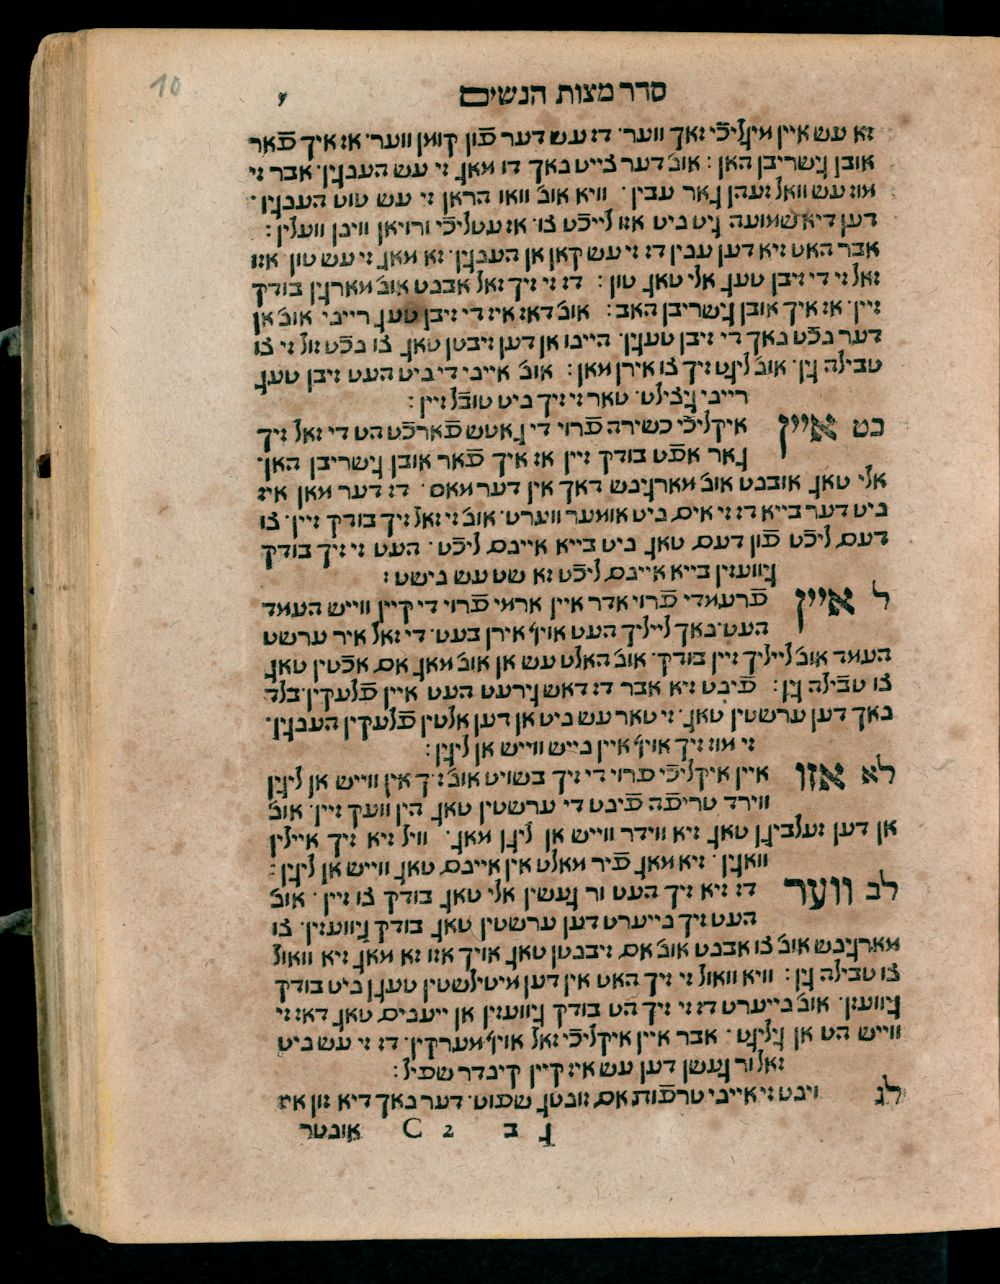 10
סדר מצות הנשים י
זא עש איין מיגליכֿי זאך ווער· דז עש דער פֿון קומן ווער· אז איך פֿאר
אובן גישריבן האן: אוב׳ דער צייט נאך דו מאג זי עש הענגין· אבר זי
מוז עש וואל זעהן גאר עבין· וויא אוב׳ וואו הראן זי עש טוט הענגין·
דען דיא שמועה גיט ניט אזו לייכֿט צו· אז עטליכֿי ורויאן ווינן וועלין:
אבר האט זיא דען ענין דז זי עש קאן אן הענגין· זא מאג זי עש טון אזו
זאל זי די זיבן טעג אלי טאג טון: דז זי זיך זאל אבנט אוב׳ מארגין בודק
זיין· אז איך אובן גישריבן האב: אוב׳ דאז איז די זיבן טעג רייני אוב׳ אן
דער נכֿט נאך די זיבן טעגין· היינו אן דען זיבטן טאג צו נכֿט זול זי צו
טבילה גין· אוב׳ ליגט זיך צו אירן מאן: אוב׳ אייני די ניט העט זיבן טעג
רייני גיצילט· טאר זי זיך ניט טובֿל זיין:
כט איין איקליכֿי כשירה פֿרוי די גאטש פֿארכֿט הט די זאל זיך
גאר אפֿט בודק זיין אז איך פֿאר אובן גישריבן האן·
אלי טאג אובנט אוב׳ מארגינש דאך אין דער מאס· דז דער מאן איז
ניט דער בייא דז זי אים ניט אומער ווערט· אוב׳ זי זאל זיך בודק זיין· צו
דעם ליכֿט פֿון דעם טאג ניט בייא איינם ליכֿט· העט זי זיך בודק
גיוועזין בייא איינם ליכֿט זא שט עש נישט:
ל איין פֿרעמדי פֿרוי אדר איין ארמי פֿרוי די קיין ווייש העמד
העט· נאך לייליך העט אויף אירן בעט· די זאל איר ערשט
העמד אוב׳ לייליך זיין בודק· אוב׳ האלט עש אן אוב׳ מאג אם אכֿטין טאג
צו טבֿילה גין: פֿינט זיא אבר דז דאש גירעט העט איין פֿלעקין· בלד
נאך דען ערשטין טאג· זי טאר עש ניט אן דען אלטין פֿלעקין הענגין·
זי מוז זיך אויף איין נייש ווייש אן ליגין:
לא אזו איין איקליכֿי פֿרוי די זיך בשויט אוב׳ זיך אין ווייש אן ליגין
ווירד טריפֿה פֿינט די ערשטין טאג הין וועק זיין· אוב׳
אן דען זעלביגן טאג זיא ווידר ווייש אן ליגן מאג· וויל זיא זיך איילין
וואגין· זיא מאג פֿיר מאלט אין איינם טאג ווייש אן ליגין:
לב ווער דז זיא זיך העט ור געשין אלי טאג בודק צו זיין· אוב׳
העט זיך נייערט דען ערשטין טאג בודק גיוועזין· צו
מארגינש אוב׳ צו אבנט אוב׳ אם זיבנטן טאג אויך אזו זא מאג זיא וואול
צו טבילה גין: וויא וואול זי זיך האט אין דען מיטילשטין טעגן ניט בודק
גיוועזן· אוב׳ נייערט דז זי זיך הט בודק גיוועזין אן ייענים טאג דאז זי
ווייש הט אן גילגט· אבר איין איקליכֿי זאל אויף מערקין· דז זי עש ניט
זאל ור געשן דען עש איז קיין קינדר שפֿיל:
לג וינט זי אייני טרפֿות אם זונטג שפוט· דער נאך דיא זון איז
ג ב C 2 אונטר